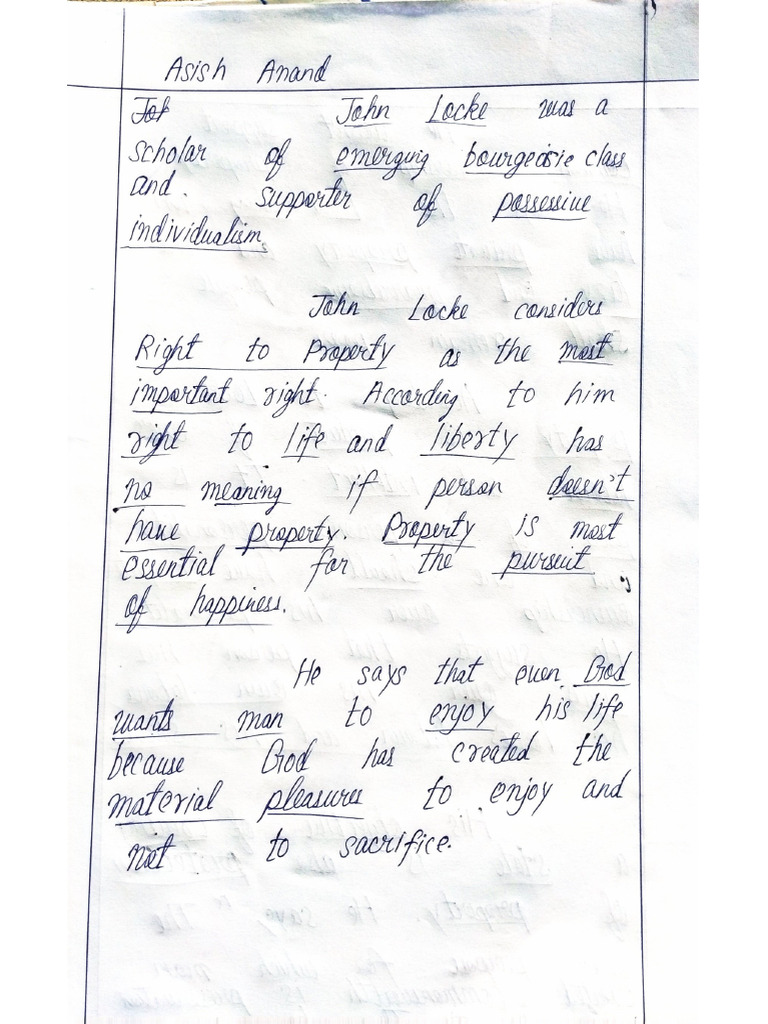 Asish Anand
Jof John Locke was a
scholar of emerging bourgeoisie class
and. supporter of possessive
individualism.
John Locke considers
Right to Property as the most
important right. According to him
right to life and liberty has
no meaning if person doesn't
have property. Property is most
essential for the pursuit
of happiness.
He says that even God
wants man to enjoy his life
because God has created the
material pleasures to enjoy and
not to sacrifice.